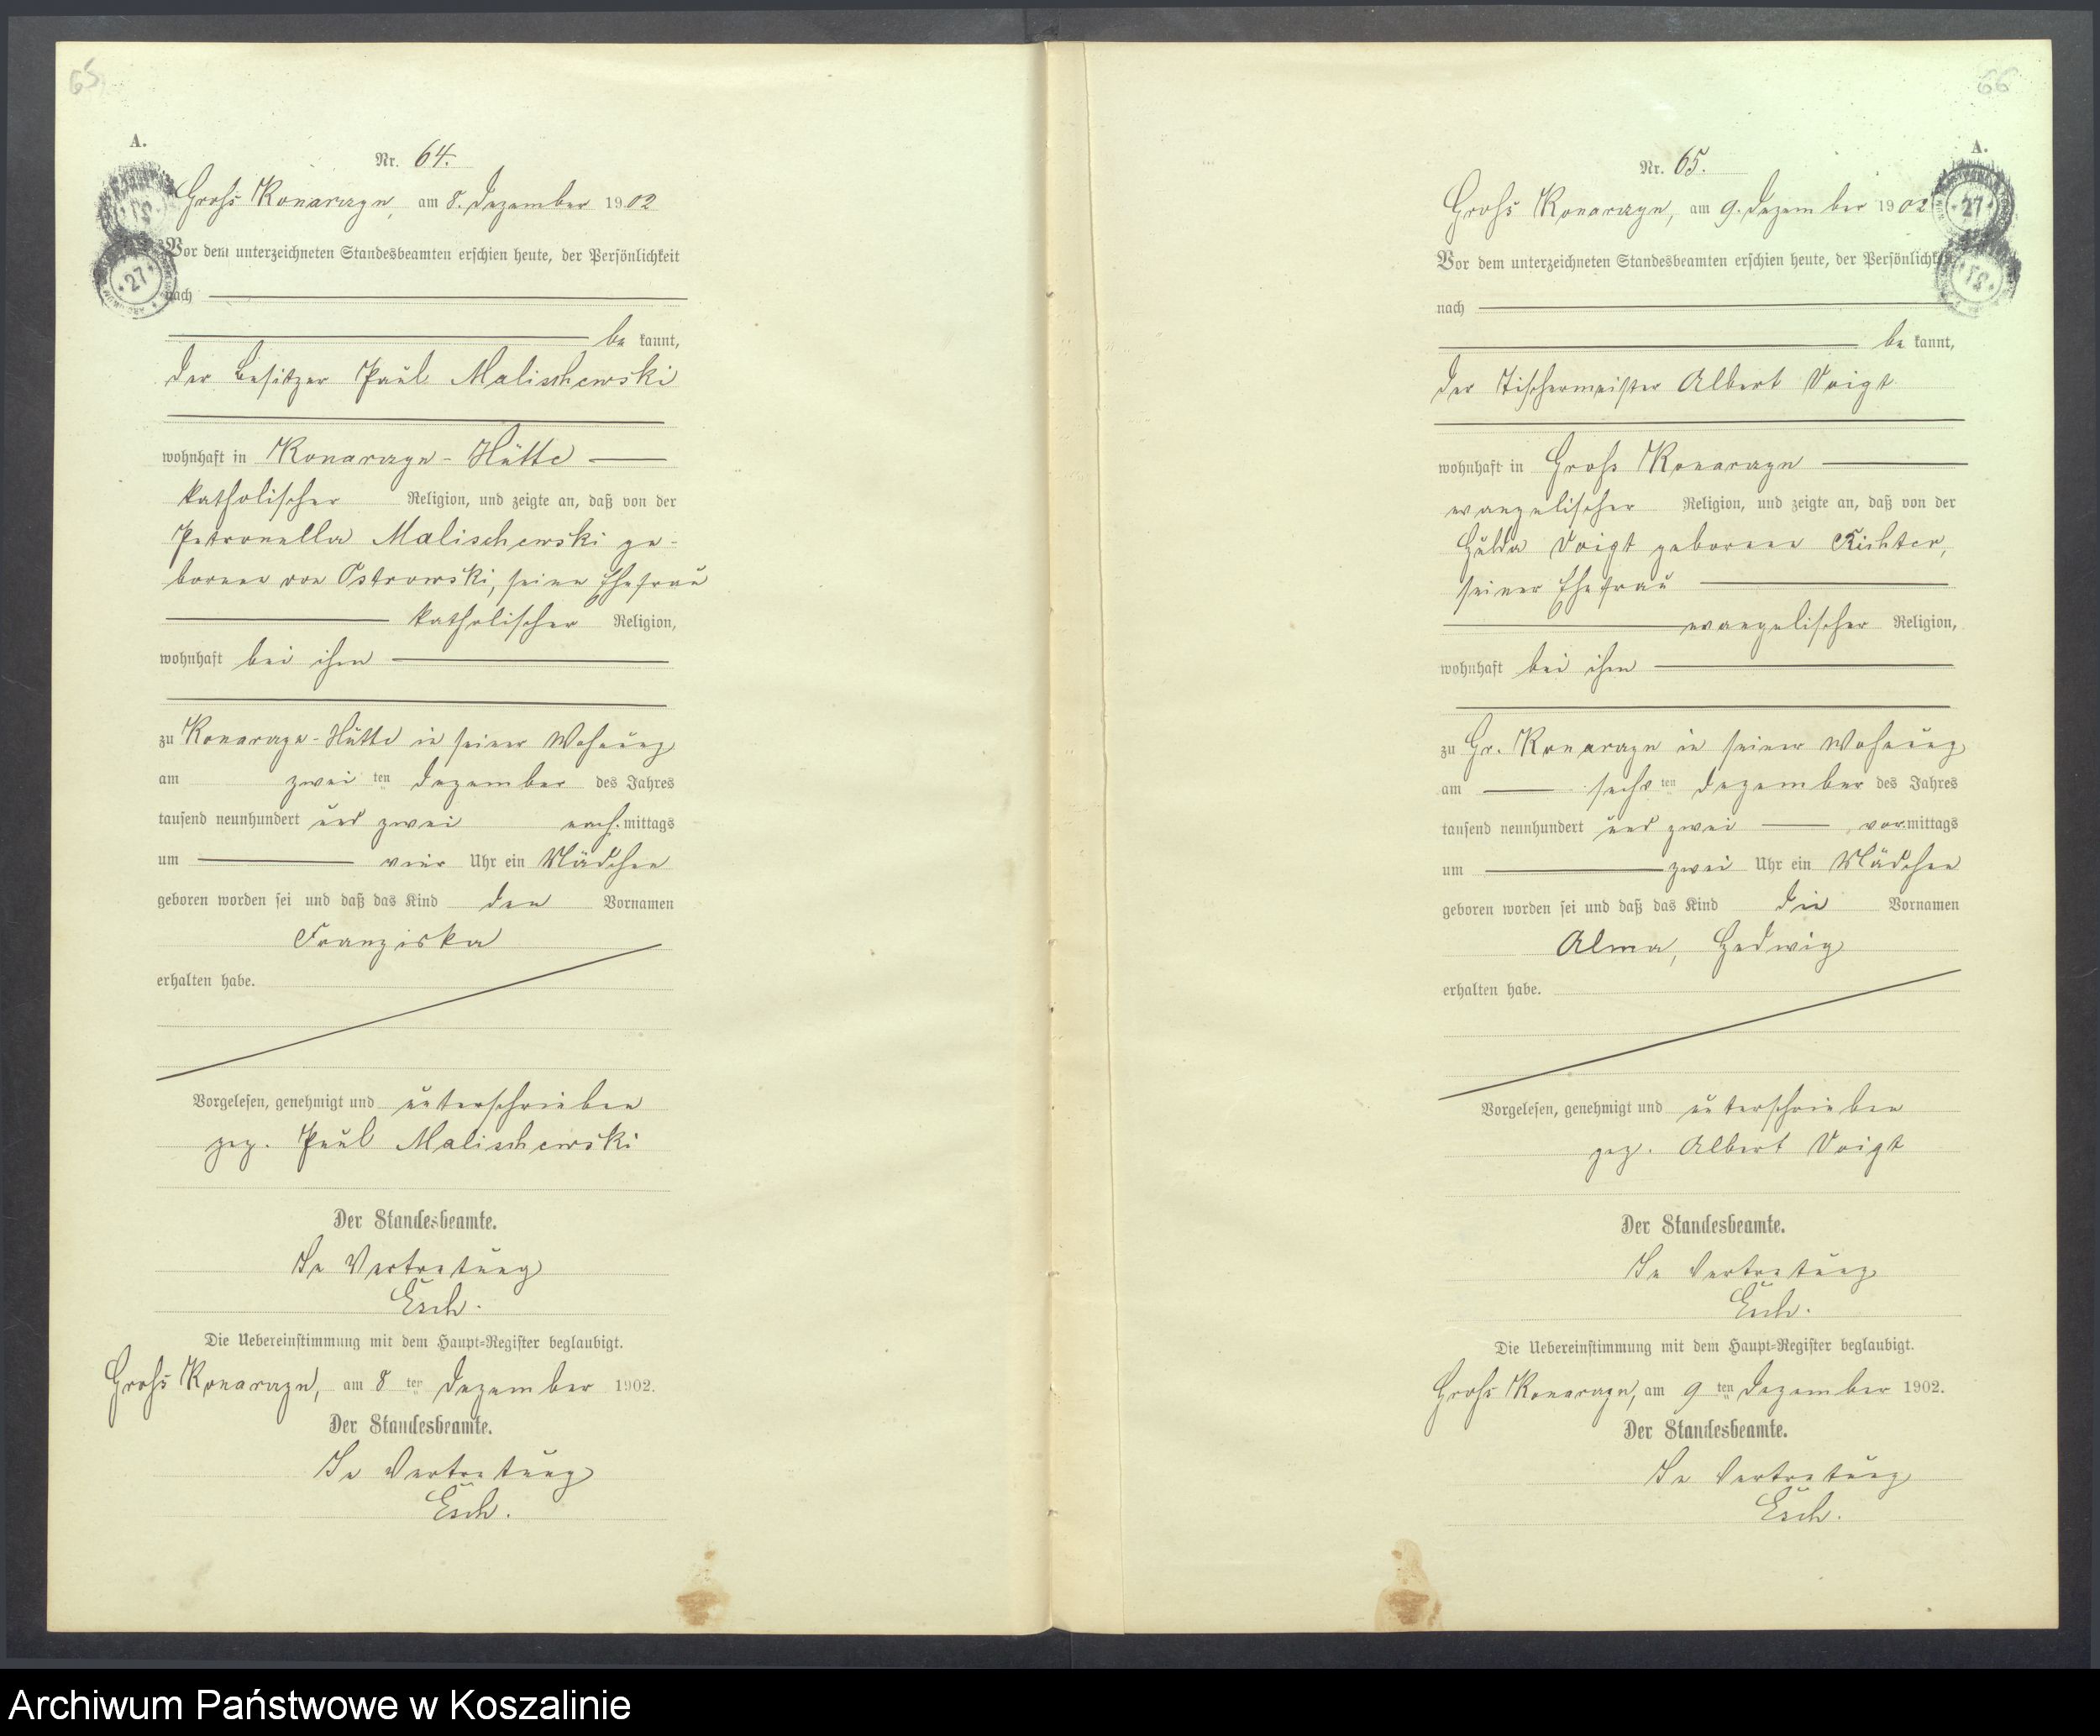 65
A.
Nr. 64.
Groß Konarczyn, am 8. Dezember 1902
Vor dem unterzeichneten Standesbeamten erschien heute, der Persönlichkeit
nach
be kannt,
der Besitzer Paul Malischewski
wohnhaft in Konarczyn-Hütte
katholischer Religion, und zeigte an, daß von der
Petronella Malischewski ge-
borene von Ostrowski, seine Ehefrau
katholischer Religion,
wohnhaft bei ihm
zu Konarczyn-Hütte in seiner Wohnung
am zwei ten Dezember des Jahres
tausend neunhundert und zwei nach.mittags
um vier Uhr ein Mädchen
geboren worden sei und daß das Kind den Vornamen
Franziska
erhalten habe.
Vorgelesen, genehmigt und unterschrieben
gez. Paul Malischewski
Der Standesbeamte.
In Vertretung
Esch.
Die Uebereinstimmung mit dem Haupt-Register beglaubigt.
Groß Konarczyn, am 8 ten Dezember 1902.
Der Standesbeamte.
In Vertretung
Esch.
66
A.
Nr. 65.
Groß Konarczyn, am 9. Dezember 1902
27
Vor dem unterzeichneten Standesbeamten erschien heute, der Persönlichk
nach
be kannt,
der Tischermeister Albert Voigt
wohnhaft in Groß Konarczyn
evangelischer Religion, und zeigte an, daß von der
Hulda Voigt geborenen Richter,
seiner Ehefrau
evangelischer Religion,
wohnhaft bei ihm
zu Gr. Konarczyn in seiner Wohnung
am sechs ten Dezember des Jahres
tausend neunhundert und zwei vor.mittags
um zwei Uhr ein Mädchen
geboren worden sei und daß das Kind die Vornamen
Alma, Hedwig
erhalten habe.
Vorgelesen, genehmigt und unterschrieben
gez. Albert Voigt
Der Standesbeamte.
In Vertretung
Esch.
Die Uebereinstimmung mit dem Haupt-Register beglaubigt.
Groß Konarczyn, am 9 ten Dezember 1902.
Der Standesbeamte.
In Vertretung
Esch.
27
Archiwum Państwowe w Koszalinie